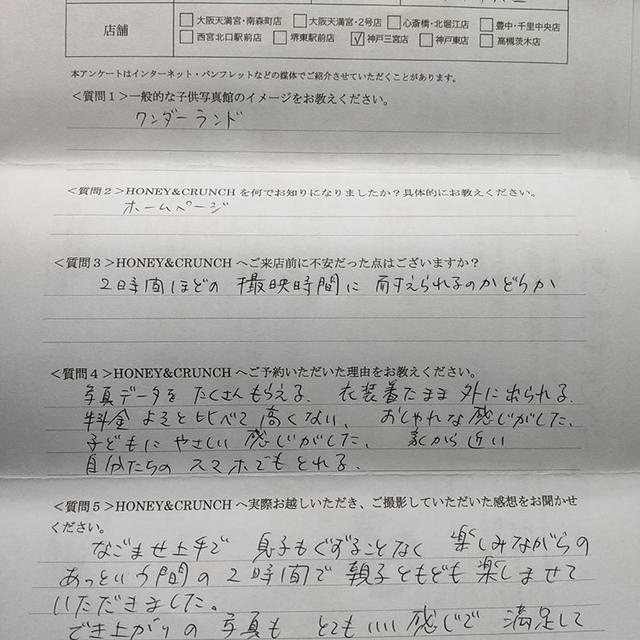 店舗
□ 大阪天満宮・南森町店 □ 大阪天満宮・2号店 □ 心斎橋・北堀江店 □ 豊中・千里中央店
□ 西宮北口駅前店 □ 堺東駅前店 ☑ 神戸三宮店 □ 神戸東店 □ 高槻茨木店
本アンケートはインターネット・パンフレットなどの媒体でご紹介させていただくことがあります。
＜質問１＞一般的な子供写真館のイメージをお教えください。
ワンダーランド
＜質問２＞HONEY&CRUNCH を何でお知りになりましたか？具体的にお教えください。
ホームページ
＜質問３＞HONEY&CRUNCH へご来店前に不安だった点はございますか？
2時間ほどの 撮映時間に 耐えられるのかどうか
＜質問４＞HONEY&CRUNCH へご予約いただいた理由をお教えください。
写真データを たくさんもらえる、 衣装着たまま 外に出られる、
料金 よそと比べて 高くない、 おしゃれな感じがした、
子どもに やさしい 感じがした、 家から近い
自分たちの スマホでもとれる、
＜質問５＞HONEY&CRUNCH へ実際お越しいただき、ご撮影していただいた感想をお聞かせ
ください。
なごませ上手で 息子もぐずることなく 楽しみながらの
あっという間の 2時間で 親子ともども 楽しませて
いただきました。
でき上がりの 写真も とてもいい 感じで 満足して